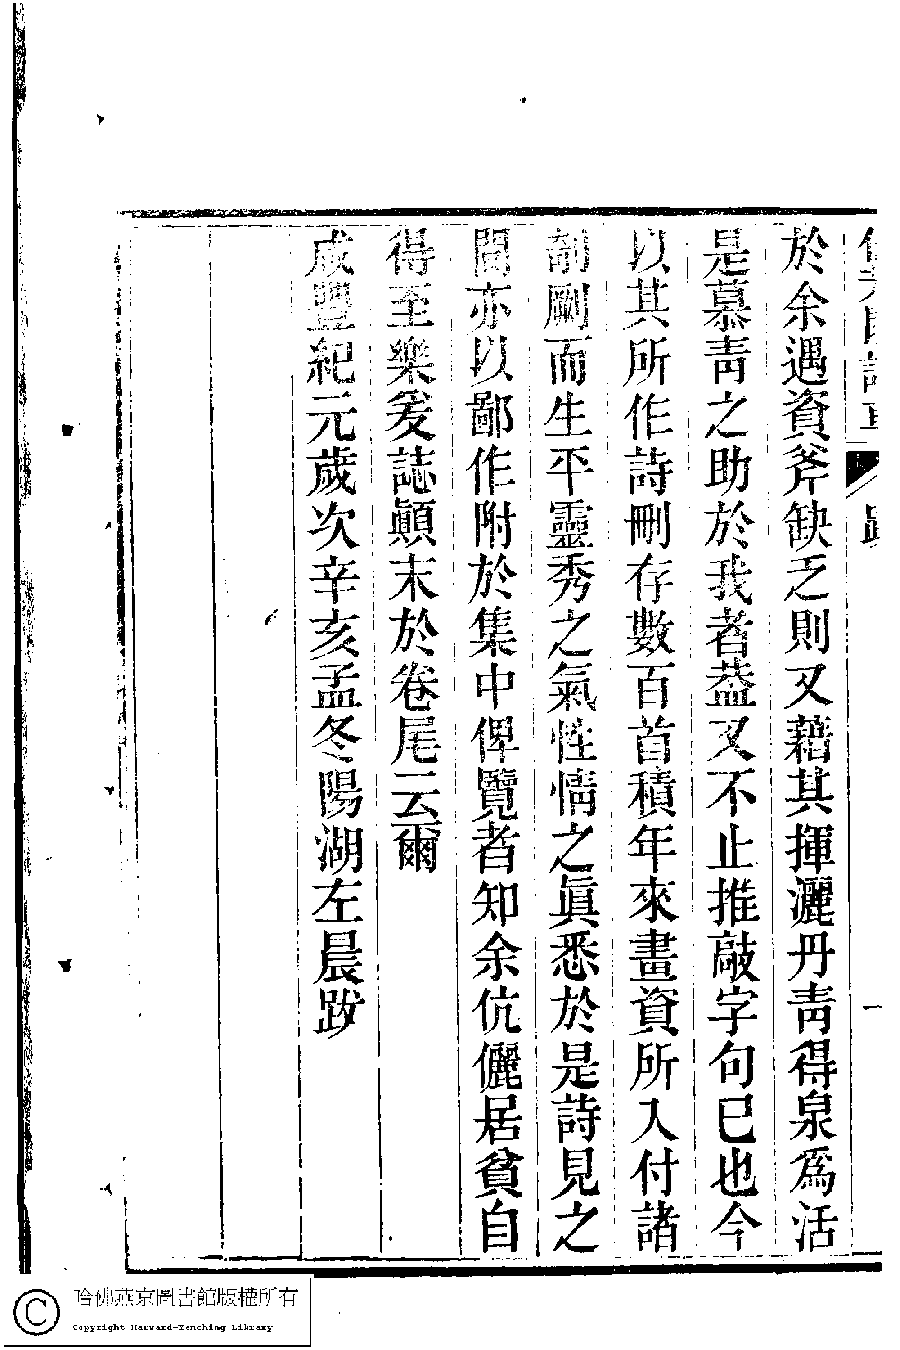 跋
一
於余遇資斧缺乏則又藉其揮灑丹靑得泉爲活
是慕靑之助於我者葢又不止推敲字句已也今
以其所作詩刪存數百首積年來畫資所入付諸
剞劂而生平靈秀之氣性情之眞悉於是詩見之
間亦以鄙作附於集中俾覽者知余伉儷居貧自
得至樂爰誌顚末於卷尾云爾
咸豐紀元歲次辛亥孟冬陽湖左晨跋
哈佛燕京圖書館版權所有
Copyright Harvard-Yenching Library